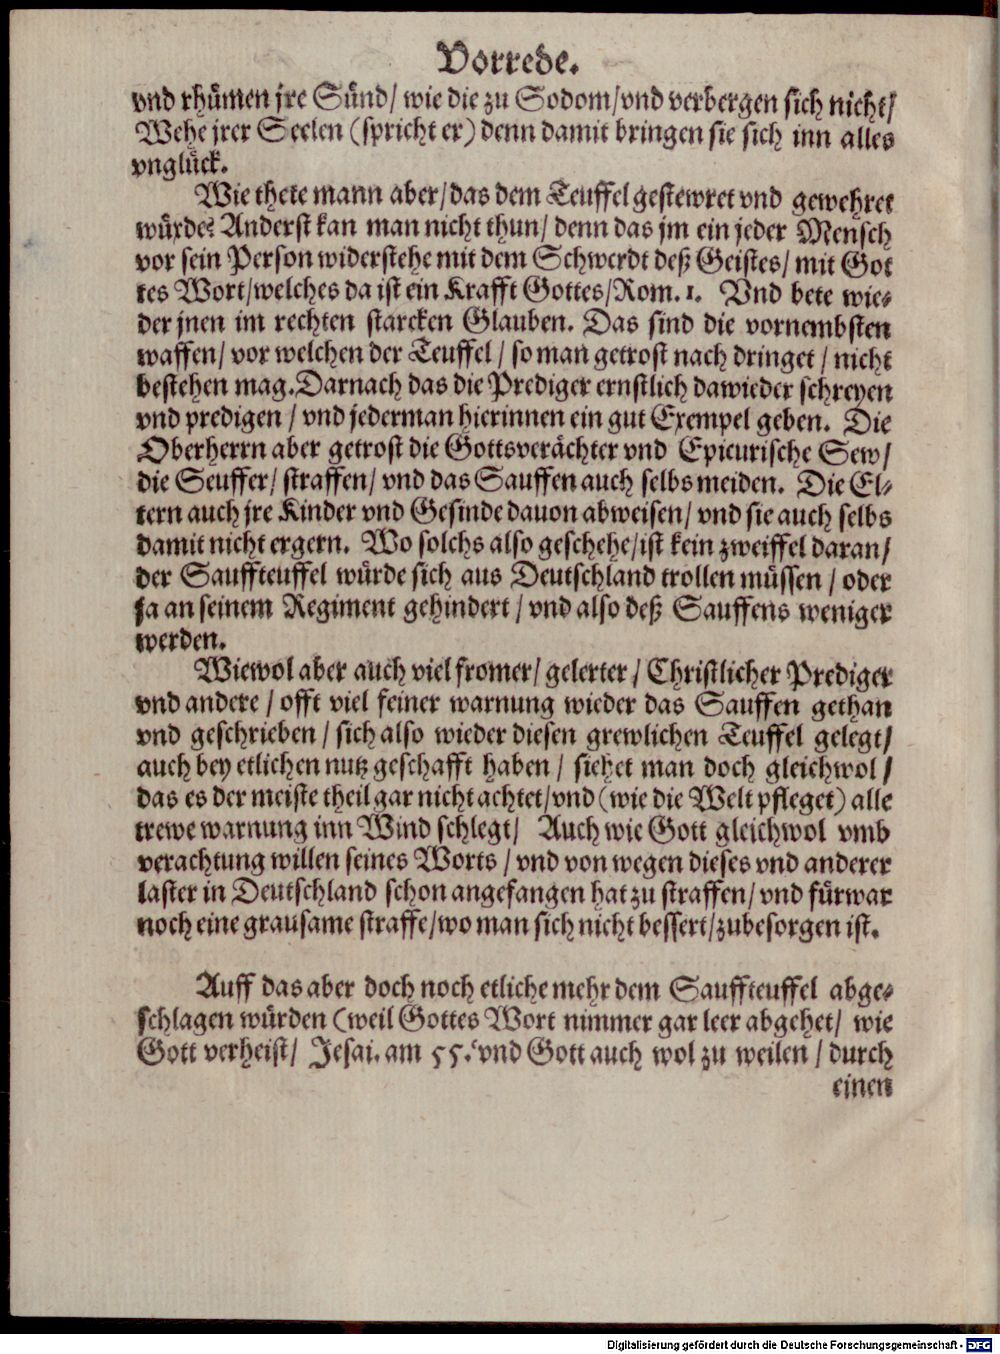 Vorrede.
vnd rhümen jre Sünd/ wie die zu Sodom/vnd verbergen sich nicht/
Wehe jrer Seelen (spricht er) denn damit bringen sie sich inn alles
vnglück.
Wie thete mann aber/das dem Teuffel gestewret vnd gewehret
würde? Anderst kan man nicht thun/ denn das jm ein jeder Mensch
vor sein Person widerstehe mit dem Schwerdt deß Geistes/ mit Got
tes Wort/welches da ist ein Krafft Gottes/Rom. 1. Vnd bete wie-
der jnen im rechten starcken Glauben. Das sind die vornembsten
waffen/ vor welchen der Teuffel/ so man getrost nach dringet/ nicht
bestehen mag. Darnach das die Prediger ernstlich dawieder schreyen
vnd predigen/ vnd jederman hierinnen ein gut Exempel geben. Die
Oberherrn aber getrost die Gottsverächter vnd Epicurische Sew/
die Seuffer/ straffen/ vnd das Sauffen auch selbs meiden. Die El-
tern auch jre Kinder vnd Gesinde dauon abweisen/ vnd sie auch selbs
damit nicht ergern. Wo solchs also geschehe/ist kein zweiffel daran/
der Sauffteuffel würde sich aus Deutschland trollen müssen/ oder
ja an seinem Regiment gehindert/ vnd also deß Sauffens weniger
werden.
Wiewol aber auch viel fromer/ gelerter/ Christlicher Prediger
vnd andere/ offt viel feiner warnung wieder das Sauffen gethan
vnd geschrieben/ sich also wieder diesen grewlichen Teuffel gelegt/
auch bey etlichen nutz geschafft haben/ siehet man doch gleichwol/
das es der meiste theil gar nicht achtet/vnd (wie die Welt pfleget) alle
trewe warnung inn Wind schlegt/ Auch wie Gott gleichwol vmb
verachtung willen seines Worts/ vnd von wegen dieses vnd anderer
laster in Deutschland schon angefangen hat zu straffen/ vnd fürwar
noch eine grausame straffe/wo man sich nicht bessert/zubesorgen ist.
Auff das aber doch noch etliche mehr dem Sauffteuffel abge-
schlagen würden (weil Gottes Wort nimmer gar leer abgehet/ wie
Gott verheist/ Jesai. am 55. vnd Gott auch wol zu weilen/ durch
einen
Digitalisierung gefördert durch die Deutsche Forschungsgemeinschaft - DFG